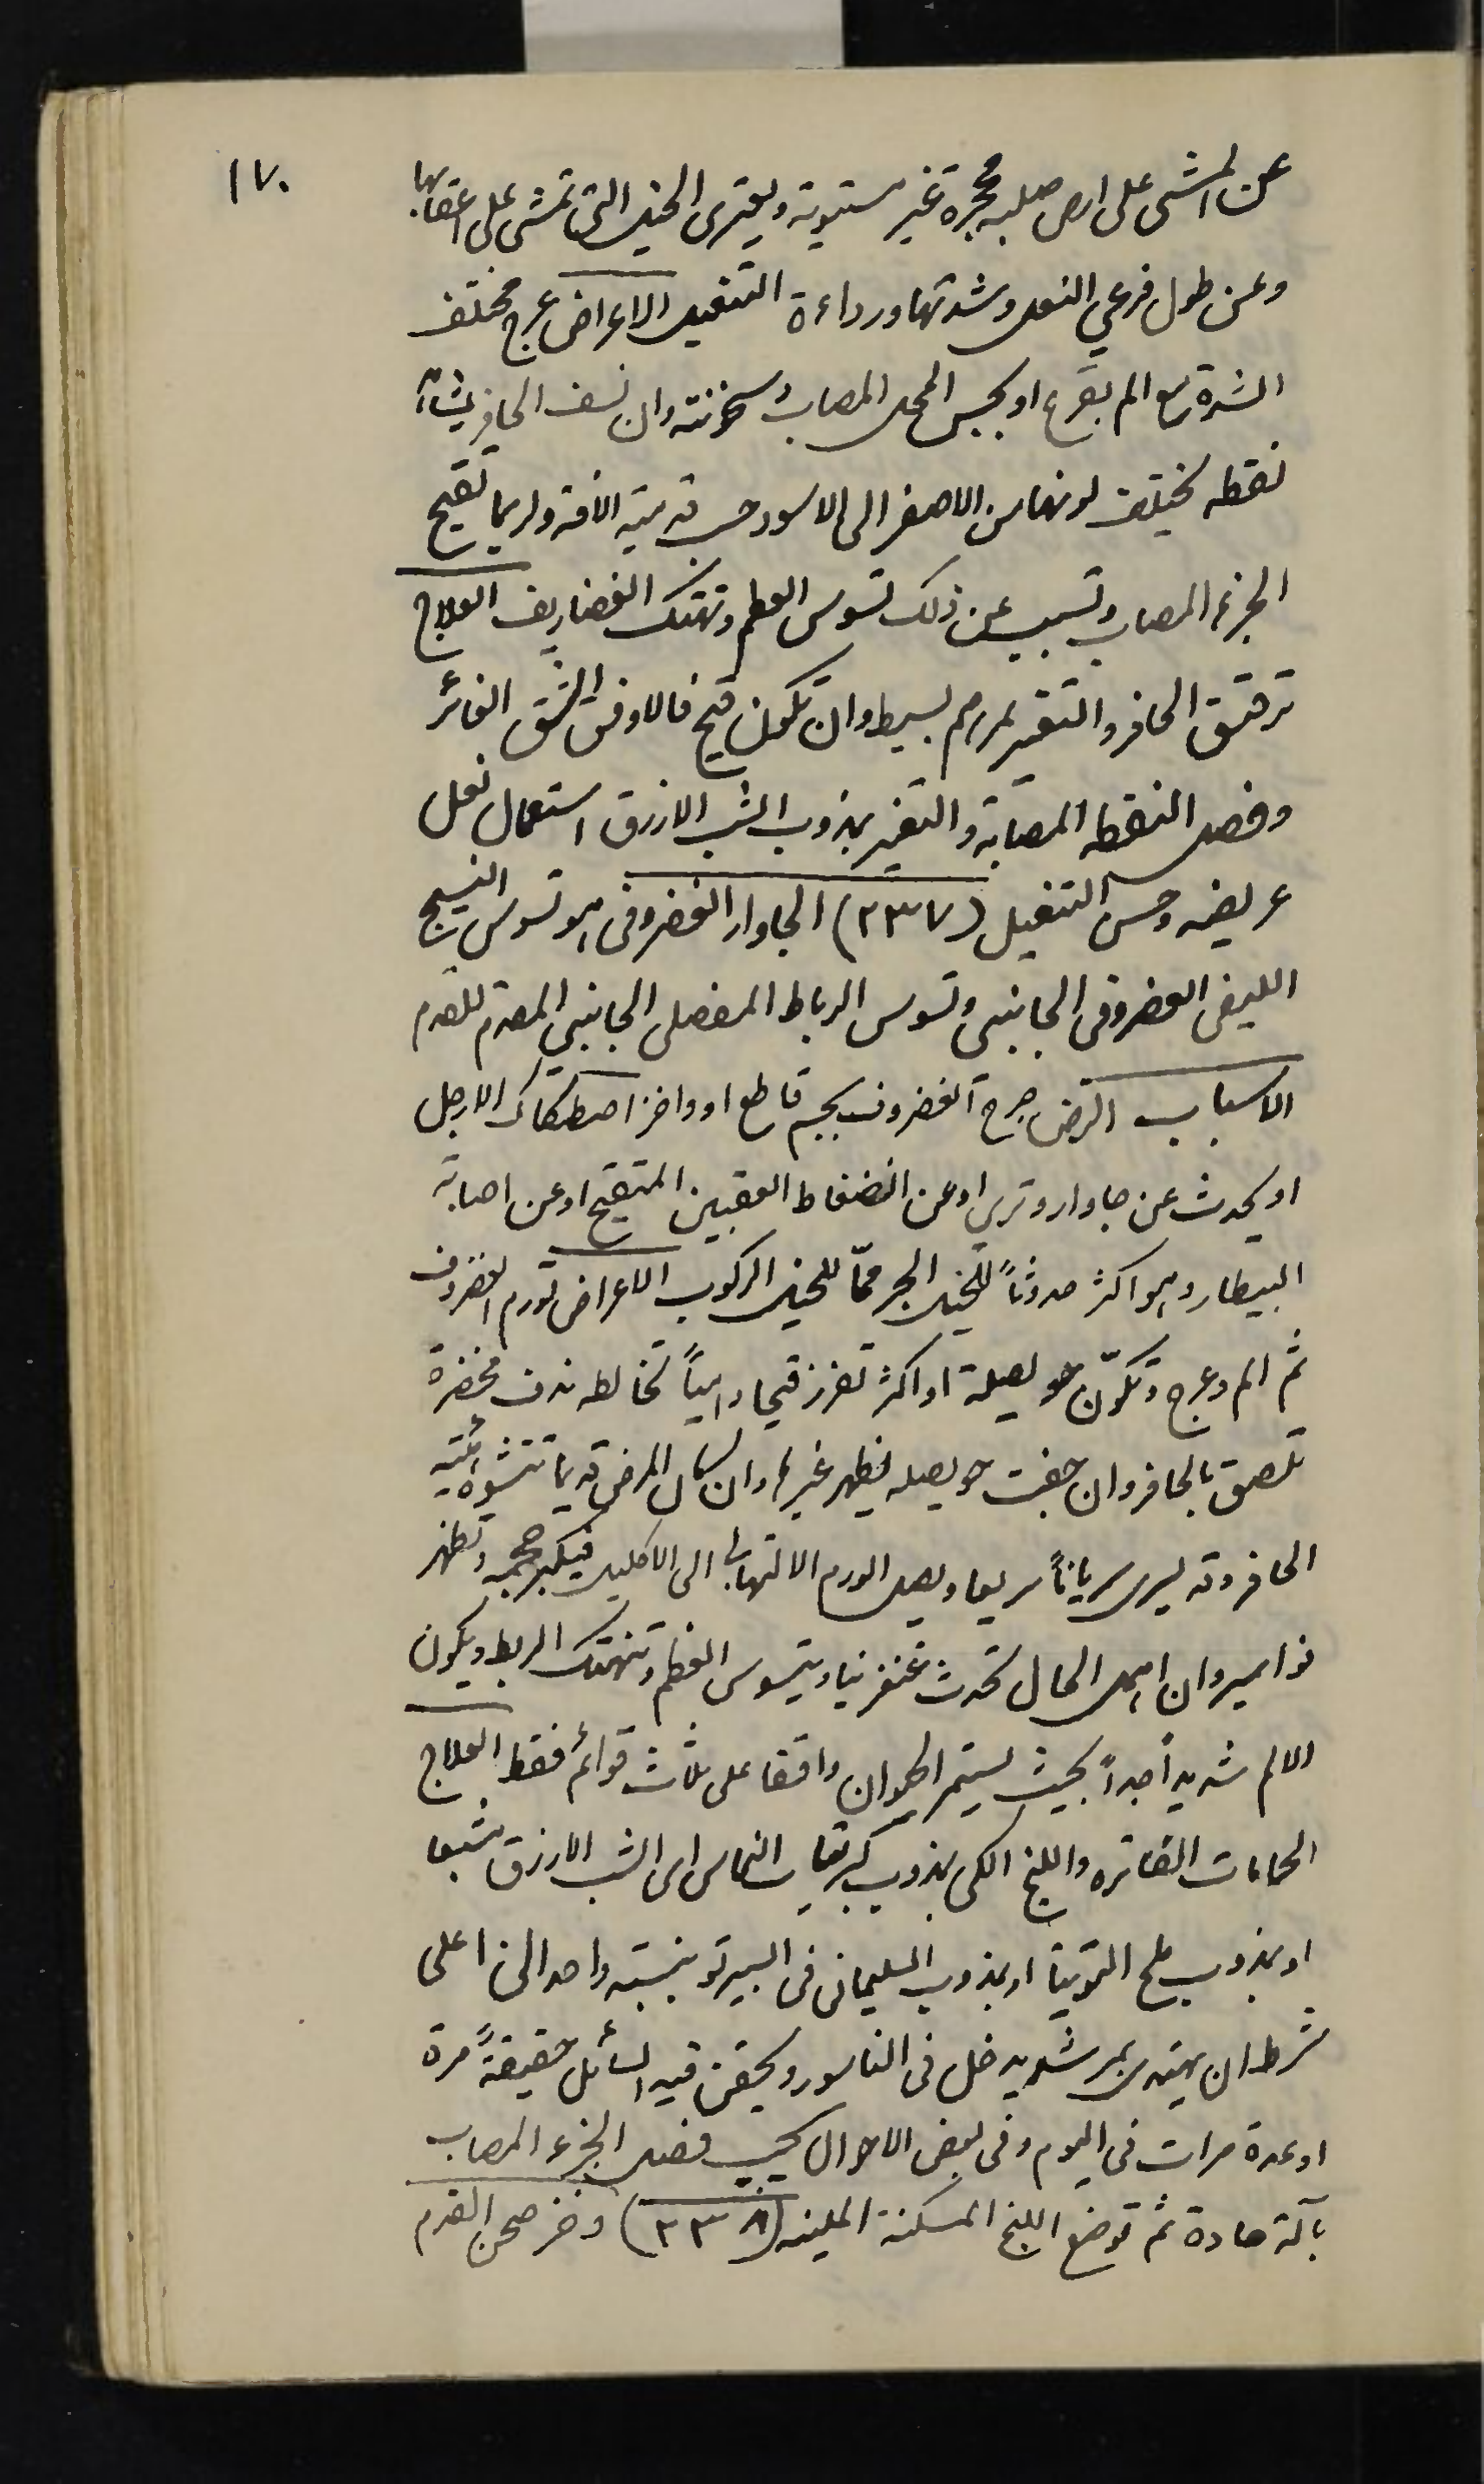 ١٧٠
عن المشى على ارض صلبه محجرة غير مستوية ويعترى الخيل التى تمشى على اعقابها
وعن طول فرعي النعل وشدتها ورداءة التنعيل الاعراض عرج مختلف
الشدة مع الم بقرع او بجس المحل المصاب وسخونته وان نسف الحافر يشاهد
نقطه يختلف لونها من الاصفر الى الاسود حسب قدمية الافة ولربما تقيح
الجزء المصاب وتسبب عن ذلك تسوس العظم وتهتك الغضاريف العلاج
ترقيق الحافر والتغيير بمرهم بسيط وان تكون قيح فالاوفق الشق الغائر
وفصل النقطه المصابة والتغيير بمذوب الشب الازرق استعمال نعل
عريضه وحسن التنعيل (٢٣٧) الجاوار الغضروفى هو تسوس النسيج
الليفى الغضروفى الجانبى وتسوس الرباط المفصلى الجانبي المقدم للقدم
الاسباب الرض جرح الغضروف بجسم قاطع او واخز اصطكاك الارجل
او يحدث عن جاوار وترى او عن انضغاط العقبين المتقيح او عن اصابة
البيطار وهو اكثر حدوثاً لخيل الجر ممّا للخيل الركوب الاعراض تورم الغضروف
ثم الم وعرج وتكوّن حويصلة او اكثر تفرز قيحا دامياً تخالطه ندف مخضرة
تلصق بالحافر وان جفت حويصله يظهر غيرها وان كان المرض قديما تتشوه هيئته
الحافر وقد يسرى سرياناً سريعا ويصل الورم الالتهابى الى الاكليل فيكبر حجمه وتظهر
نواسير وان اهمل الحال تحدث غنغرينا ويتسوس العظم وتنهتك الربط ويكون
الالم شديداً جداً بحيث يستمر الحيوان واقفا على ثلاث قوائم فقط العلاج
الحمامات الفاتره واللبخ الكى بمذوب كبريتات النحاس اى الشب الازرق مشبعا
او بمذوب ملح التوتيا او بمذوب السليمانى فى السبيرتو بنسبة واحد الى اعلى
شرط ان يهتدى بمرشد يدخل فى الناسور ويحقن فيه السائل حقيقةً مرة
او عدة مرات فى اليوم وفى بعض الاحوال يجب فصل الجزء المصاب
بآلة حادة ثم توضع اللبخ المسكنة الملينه (٢٣٨) وخز صحن القدم